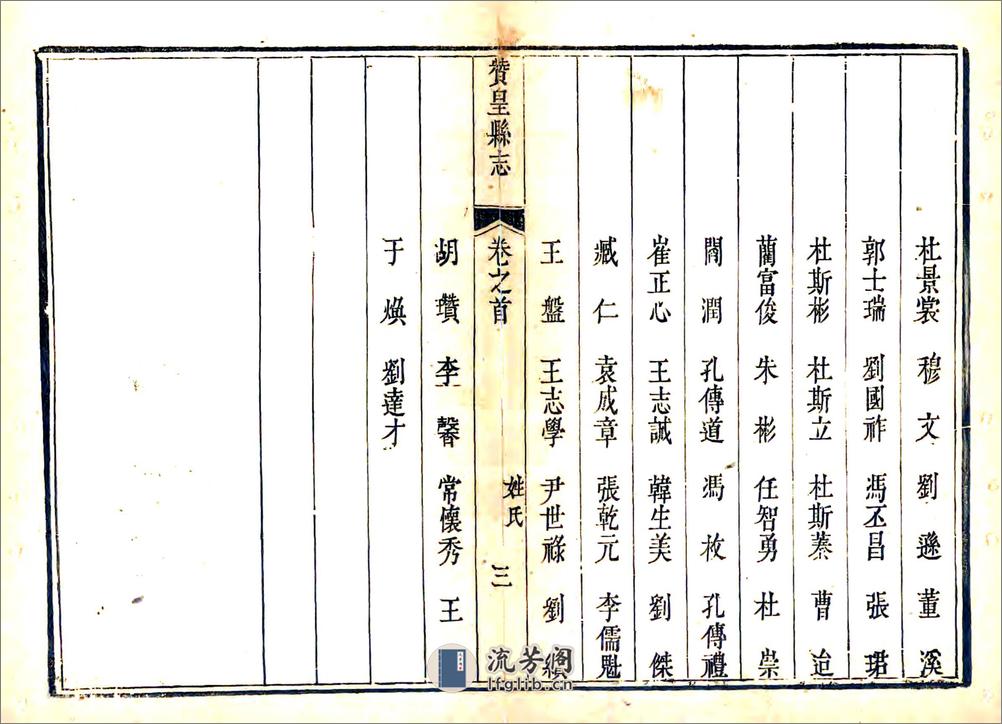 杜景裳 穆文 劉遜 董溪
郭士瑞 劉國祚 馮丕昌 張珺
杜斯彬 杜斯立 杜斯蓁 曹迨
藺富俊 朱彬 任智勇 杜崇
閻潤 孔傳道 馮枚 孔傳禮
崔正心 王志誠 韓生美 劉傑
臧仁 袁成章 張乾元 李儒魁
王盤 王志學 尹世祿 劉績
贊皇縣志 卷之首 姓氏 三
胡瓚 李馨 常懷秀 王
于煥 劉達才
流芳阁
lfglib.cn